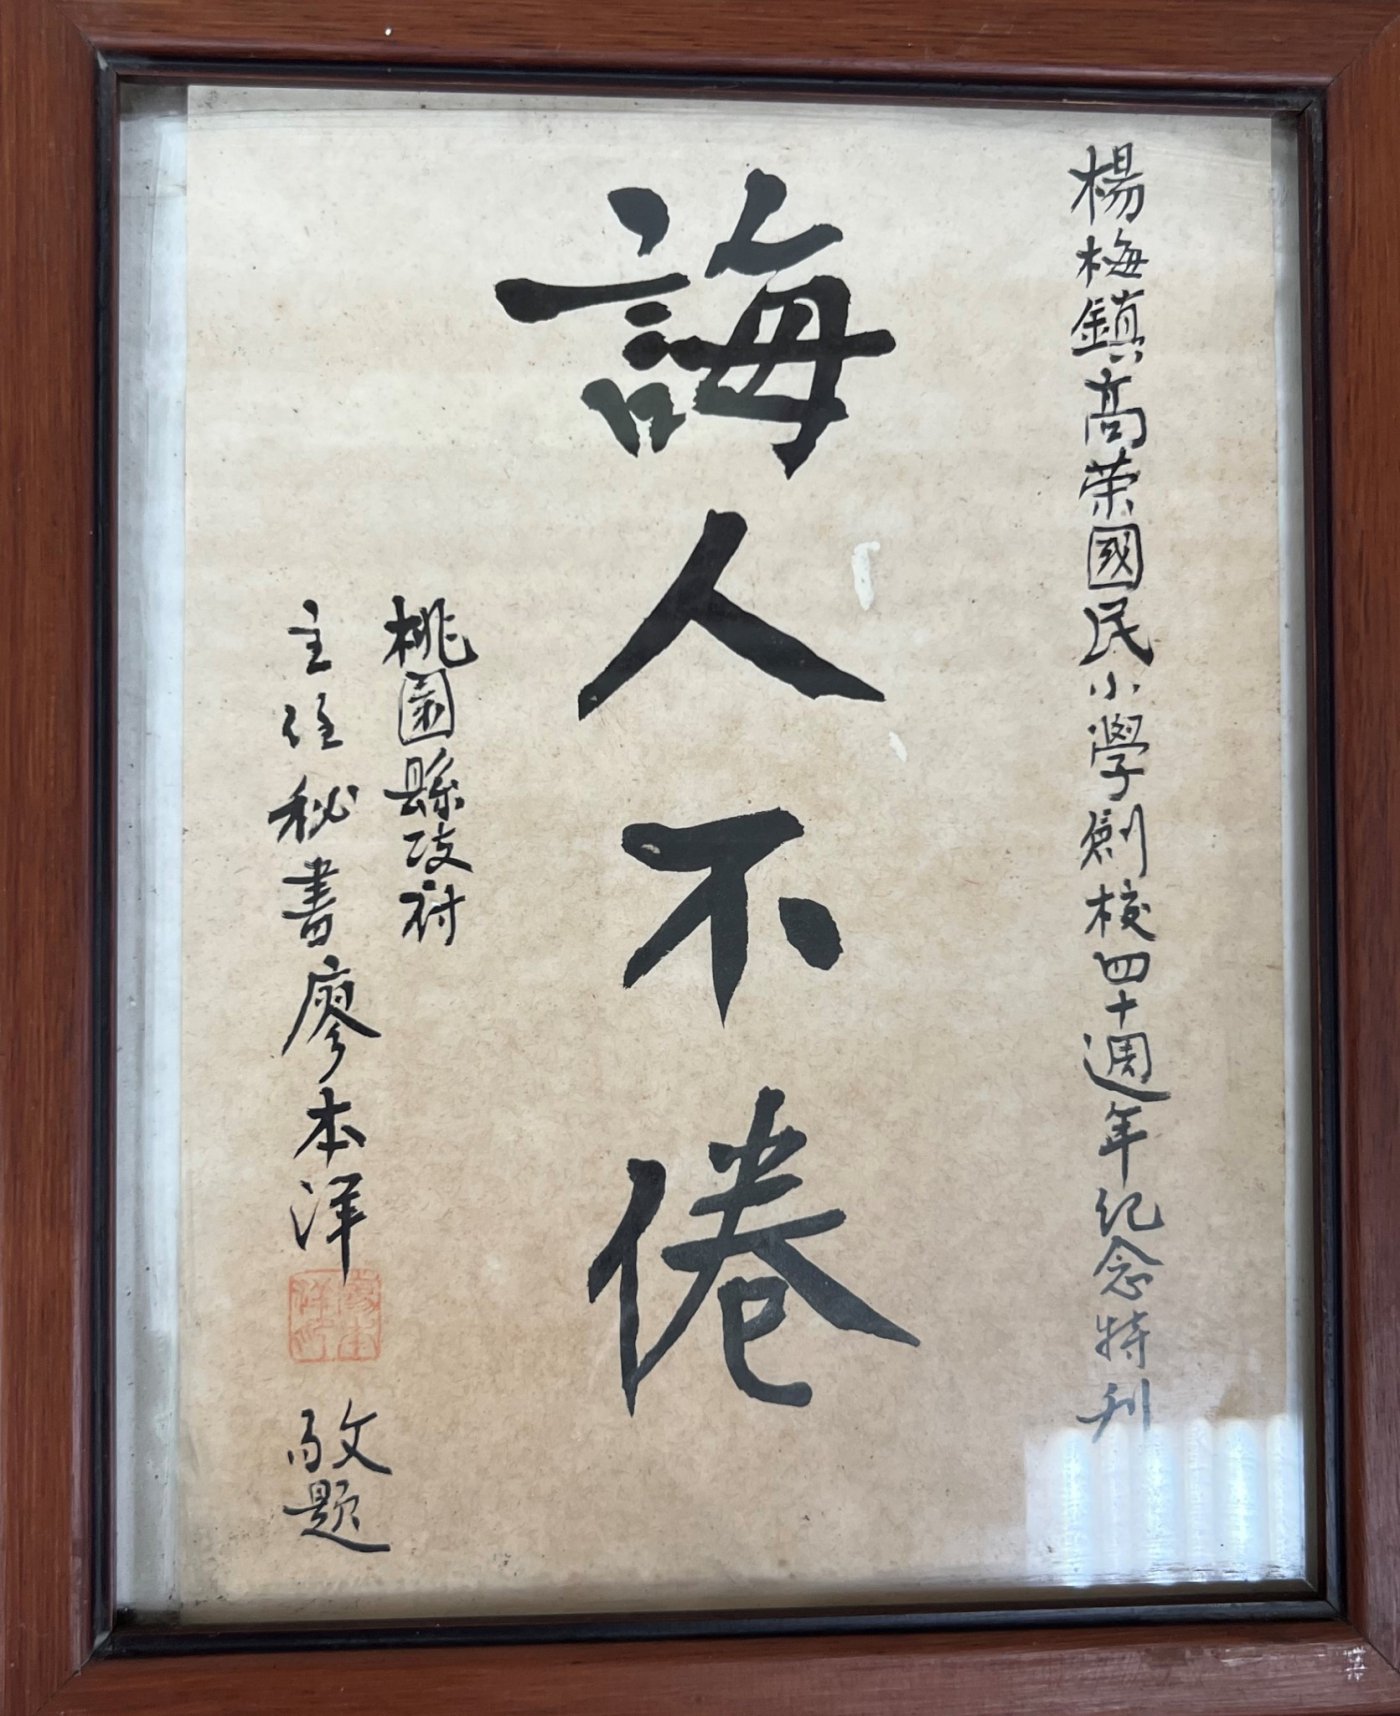 楊梅鎮高榮國民小學創校四十週年紀念特刊
誨人不倦
桃園縣政府
主任秘書廖本洋
敬題